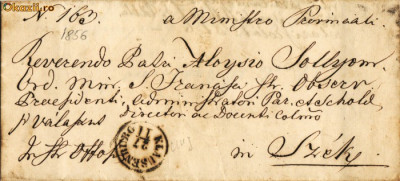 Okazii.ro
N. 163. a Ministro Provinciali.
1856
Reverendo Patri Aloysio Sollyom.
Ord. Min. S. Francisci Str. Observ
Praesidenti, Administratori Par. et Schol
Directori ac Docenti
p Válaszut
KLAUSENBURG
in Szék